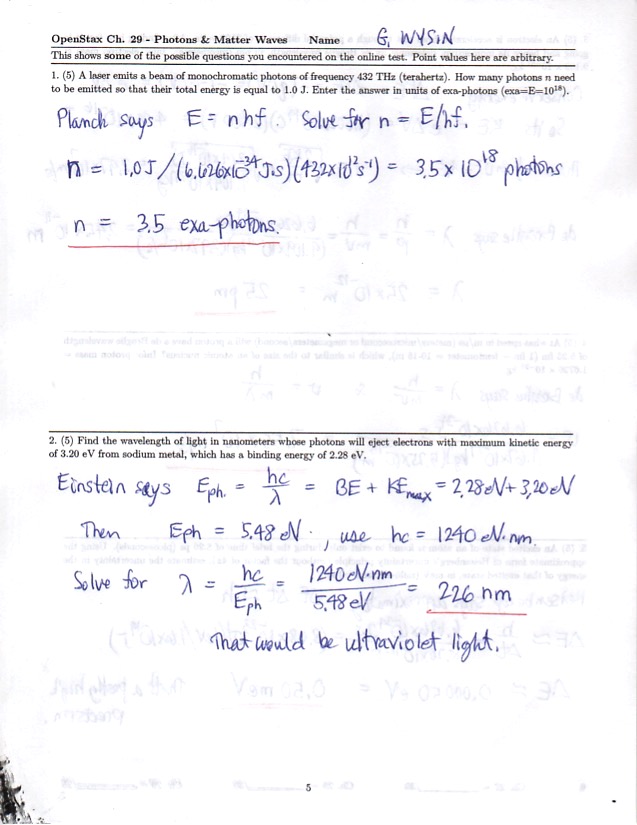 OpenStax Ch. 29 - Photons & Matter Waves Name G. WYSIN
This shows some of the possible questions you encountered on the online test. Point values here are arbitrary.
1. (5) A laser emits a beam of monochromatic photons of frequency 432 THz (terahertz). How many photons n need
to be emitted so that their total energy is equal to 1.0 J. Enter the answer in units of exa-photons (exa=E=10¹⁸).
Planck says E = nhf. Solve for n = E/hf.
n = 1.0 J/(6.626x10⁻³⁴ J·s)(432x10¹² s⁻¹) = 3.5 x 10¹⁸ photons
n = 3.5 exa-photons.
2. (5) Find the wavelength of light in nanometers whose photons will eject electrons with maximum kinetic energy
of 3.20 eV from sodium metal, which has a binding energy of 2.28 eV.
Einstein says Eph. = hc/λ = BE + KEmax = 2.28 eV + 3.20 eV
Then Eph = 5.48 eV. , use hc = 1240 eV·nm.
Solve for λ = hc/Eph = 1240 eV·nm/5.48 eV = 226 nm
That would be ultraviolet light.
5